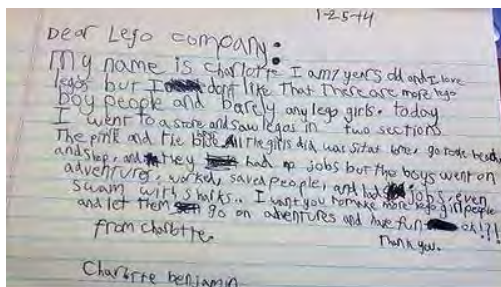 1-25-14
Dear Lego company:
My name is Charlotte. I am 7 years old and I love
legos but I don't like that there are more lego
boy people and barely any lego girls. today
I went to a store and saw legos in two sections
The pink and the blue. All the girls did was sit at home, go to the beach,
and shop, and they had no jobs but the boys went on
adventures, worked, saved people, and had jobs, even
swam with sharks. I want you to make more lego girl people
and let them go on adventures and have fun ok!?!
from Charlotte.
Thank you.
Charlotte benjamin